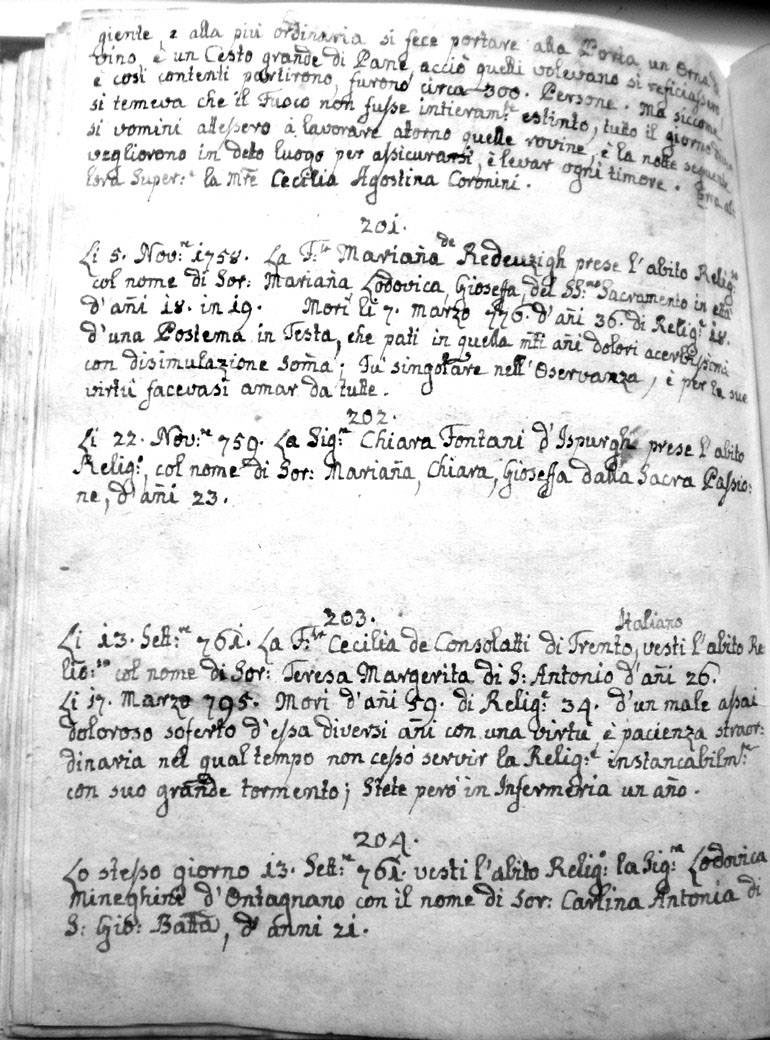 giente, e alla più ordinaria si fece portare alla Porta un Orna di
vino, è un Cesto grande di Pane, acciò quelli volevano si reficiassero,
è così contenti partirono, furono circa 300. Persone. Ma siccome
si temeva che il Fuoco non fusse intieram:te estinto, tutto il giorno
si uomini attessero à lavorare atorno quelle rovine, è la notte seguente
vegliorono in deto luogo per assicurarsi, è levar ogni timore.
lora Super:a la Mre Cecilia Agostina Coronini.
201.
Li 5. Nov:re 1758. La F:la Mariaña de Redeuzigh prese l'abito Relig:o
col nome di Sor: Mariaña Lodovica, Gioseffa, del SS:mo Sacramento in età
d'añi 18. in 19. Morì li 7. marzo 776. d'añi 36. di Relig:e 18.
d'una Postema in Testa, che patì in quella mti añi dolori acerbissimi
con disimulazione soma; Fu singolare nell'Oservanza, è per le sue
virtù facevasi amar da tutte.
202.
Li 22. Nov:re 759. La Sig:ra Chiara Fontani d'Ispurgh prese l'abito
Relig:o, col nome di Sor: Mariaña, Chiara, Gioseffa dalla Sacra Passio:
ne, d'añi 23.
203.
Italiano
Li 13. Sett:re 761. La F:la Cecilia de Consolatti di Trento, vestì l'abito Re
lio:so col nome di Sor: Teresa Margerita di S: Antonio d'añi 26.
Li 17. Marzo 795. Morì d'añi 59. di Relig:e 34. d'un male assai
doloroso soferto d'essa diversi añi con una virtù è pacienza straor:
dinaria nel qual tempo non cessò servir la Relig:e instancabilm:te
con suo grande tormento; Stete però in Infermeria un año.
204.
Lo stesso giorno 13. Sett:re 761. vestì l'abito Relig:o la Sig:ra Lodovica
Mineghini d'Ontagnano con il nome di Sor: Carlina Antonia di
S: Gio: Batta, d'anni 21.